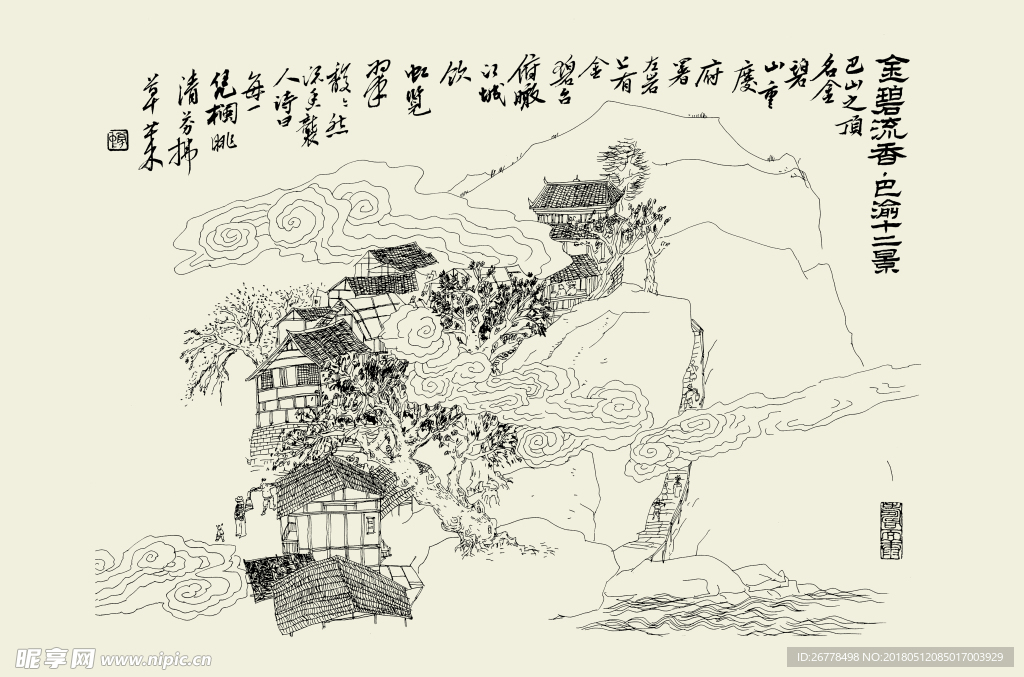 金碧流香·巴渝十二景
巴山之顶
名金
碧
山重
慶
府
署
左岩
上有
金
碧台
俯瞰
江城
饮
虹览
翠
馥馥然
香襲
人诗曰
每一
凭栏眺
清芬拂
草莱
昵享网 www.nipic.cn
ID:26778498 NO:20180512085017003929